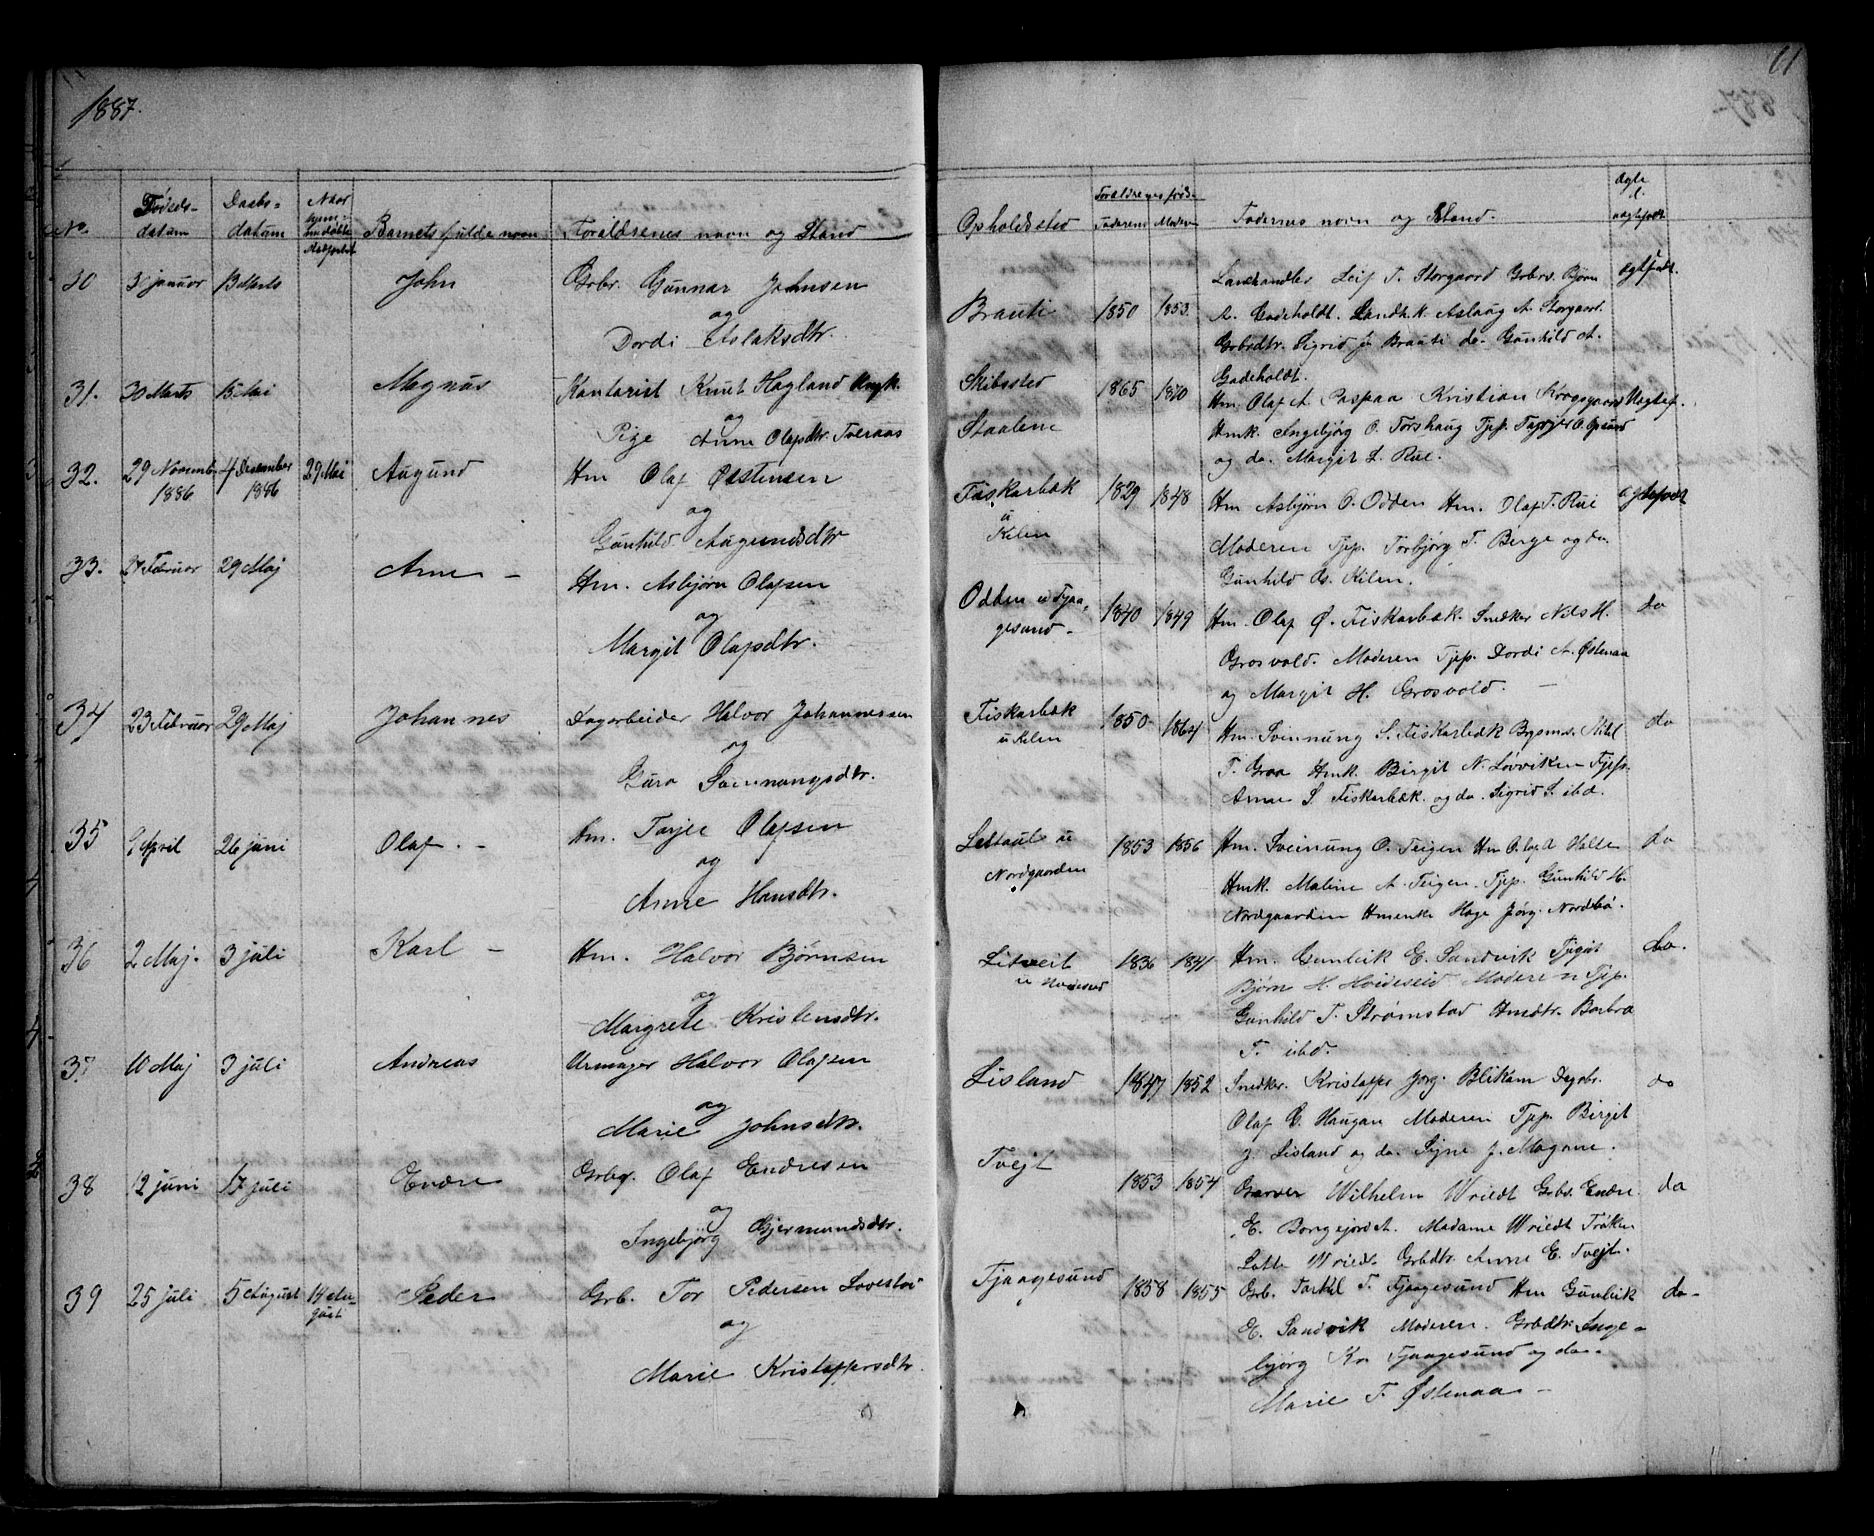 1887.
11
No.
Fødsels-
datum
Daabs-
datum
Naar
hjem-
medøbte
stadfæstet
Barnets fulde navn
Forældrenes navn og Stand
Opholdssted
Forældrenes føds-
Faderens
Moderen
Faddernes navn og Stand.
ægte
l.
uægtefødt
30 31 januar 13 Marts John Grbr. Gunnar Johnsen
og
Dordi Aslaksdtr.
Brauti 1850 1853 Landhandler Leif T. Storgaard Grbrs. Bjørn ægtefødt.
A. Gadeholdt. Landh.k. Aslaug A. Storgaard.
Grbrdtr. Sigrid J. Brauti do. Gunhild A.
Gadeholdt.
31. 30 Marts 15 Mai Magnus Kontorist Knut Hagland Ungk.
og
Pige Anne Olafsdtr. Tveraas
Skibssted
Staalene
1865 1870 Hm. Olaf A. Raspaa Kristian Krogsgaard Uægtef.
Hmk. Ingebjørg O. Torshaug Tjp.
og do. Margit L. Rue.
32. 29 November 4 December 29 Mai Augund Hm Olaf Østensen
1886 1886
og
Gunhild Augundsdtr
Fiskarbæk 1829 1848 Hm Asbjørn O. Odden Hm. Olaf T. Rue ægtefødt
u
Kilen
Moderen Tjp. Torbjørg T. Berge og do.
Gunhild Os. Kilen.
33. 27 Februar 29 Maj Anne - Hm. Asbjørn Olafsen
og
Margit Olafsdtr.
Odden u Fjaa-
gesund -
1840 1849 Hm. Olaf Ø. Fiskarbæk. Snedker Nils H. do
Grosvold. Moderen Tjp. Dordi A. Østenaa
og Margit H. Grosvold. -
34 23 Februar 29 Maj Johannes Dagarbeider Halvor Johannessen
og
Guro Sveinungsdtr.
Fiskarbæk 1850 1864 Hm. Sveinung S. Fiskarbæk Bygms. Kitel do
u Kilen
T. Graa Hmk. Birgit N. Lovviken Tjp.
Anne S. Fiskarbæk. og do. Sigrid S. ibd.
35 9 April 26 juni Olaf. - Hm. Tarjei Olafsen
og
Anne Hansdtr.
u
Nordgaarden
1853 1856 Hm. Sveinung O. Teigen Hm Olaf A Halte do
Hmk. Maline A. Teigen. Tjp. Gunhild H.
Nordgaarden Hmenke Hage Jørg. Nordbø.
36 2 Maj. 3 juli Karl - Hm. Halvor Bjørnsen
og
Margrete Kristensdtr.
Litveit 1836 1841 Hm. Gunleik E. Sandvik Tjgut do.
u Hvideseid
Bjørn H. Hvideseid Moderen Tjp.
Gunhild T. Strømstad Hmdtr. Barbra
T. ibd.
37 10 Maj 3 juli Andreas Urmager Halvor Olafsen
og
Marie Johnsdtr.
Lisland 1847 1852 Snedker. Kristaffer Jørg. Blikam Dagarb. do
Olaf C. Haugan Moderen Tjp. Birgit
J. Lisland og do. Signe J. Mogane.
38 12 juni 17 juli Endre Grbrg. Olaf Endresen
og
Ingebjørg Gjermundsdtr.
Tvejt 1853 1854 Garver Wilhelm Wriedt Grbs. Endre do
E. Borgejordet. Madame Wriedt Frøken
Lotte Wriedt Grbdtr. Anne E. Tvejt.
39 25 juli 5 August 14 Au-
gust
Peder Grb. Tor Pedersen Lovestøi
og
Marie Kristaffersdtr.
Fjaagesund 1858 1855 Grb. Tarkel T. Fjaagesund Hm Gunleik do-
E. Sandvik Moderen. Grbdtr. Inge-
bjørg Kr. Fjaagesund og do.
Marie T. Østenaa -